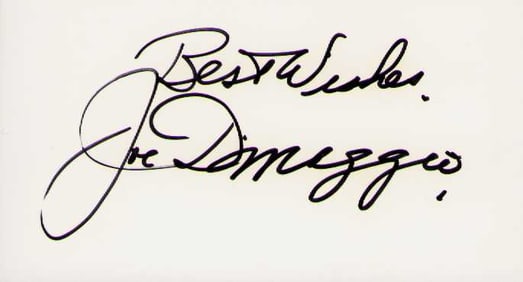 Best Wishes.
Joe Dimaggio.